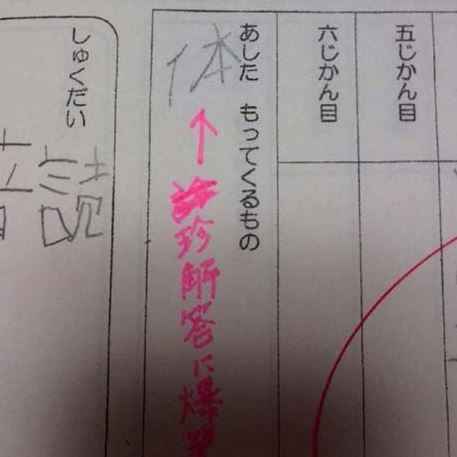 五じかん目
六じかん目
あした もってくるもの
体
↑
珍解答に爆笑
しゅくだい
音読